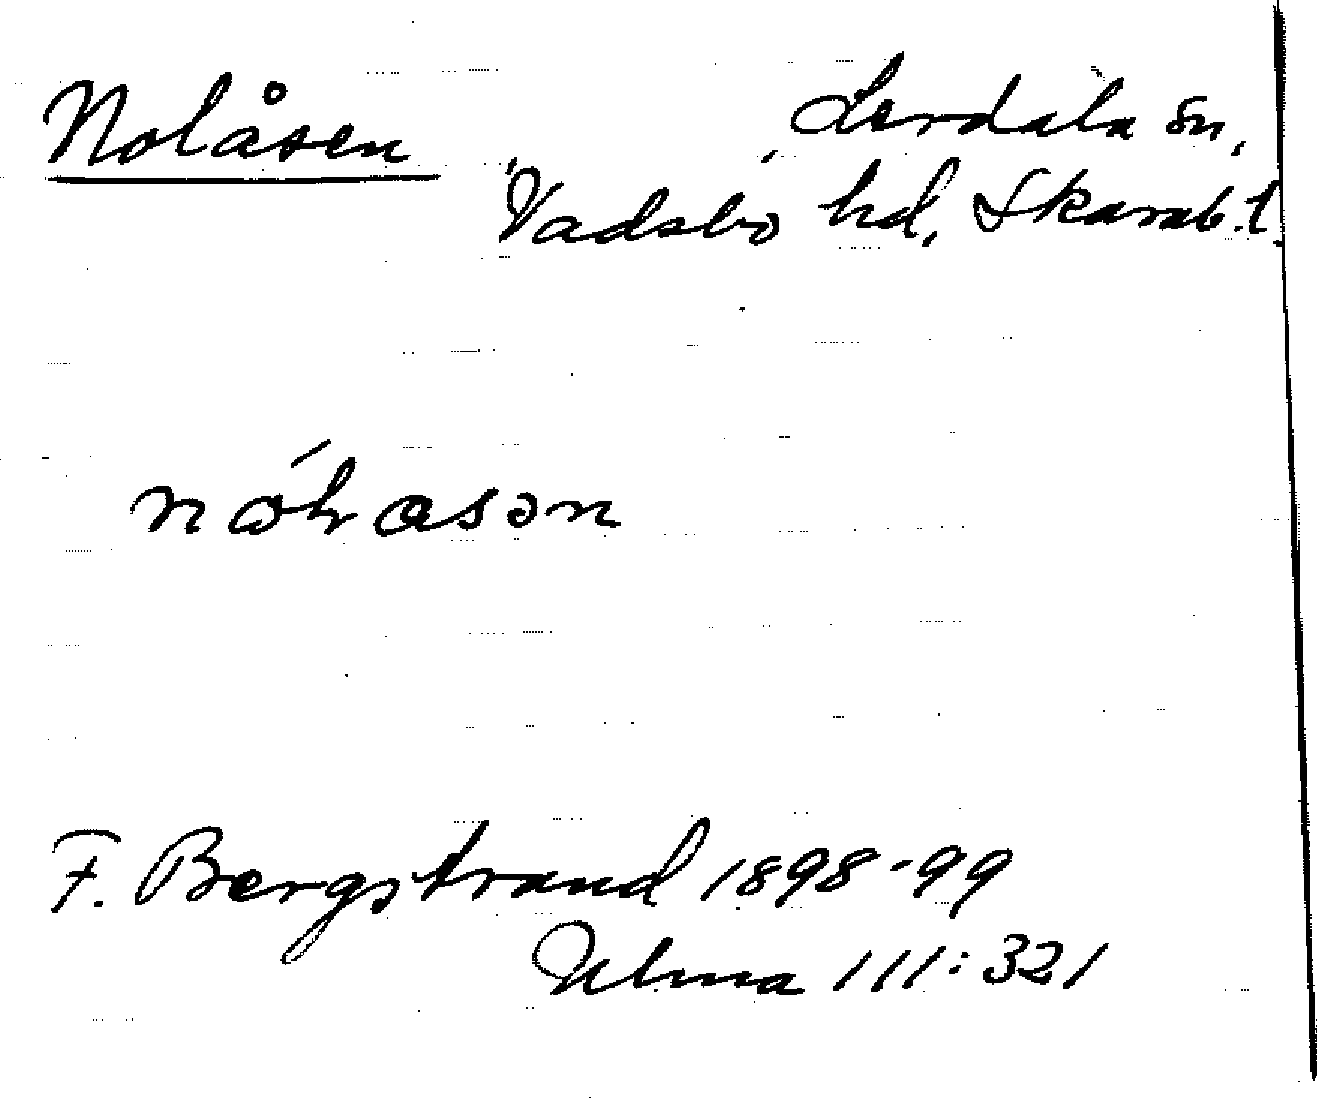 Nolåsen
Lerdala sn,
Vadsbo hd, Skarab. l.
F. Bergstrand 1898-99
Ulma 111:321